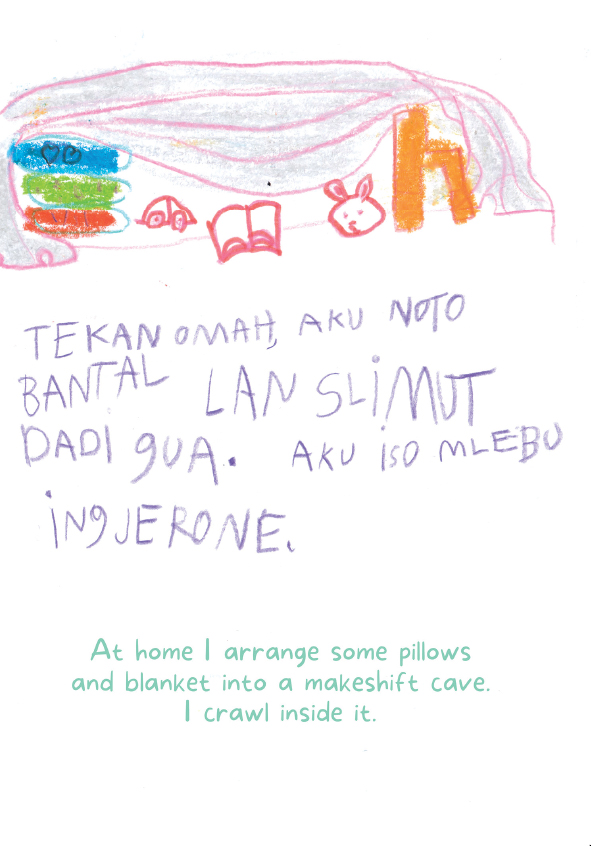 TEKAN OMAH, AKU NOTO
BANTAL LAN SLiMUT
DADI gUA. AKU iSO MLEBU
iNgJERONE.
At home I arrange some pillows
and blanket into a makeshift cave.
I crawl inside it.